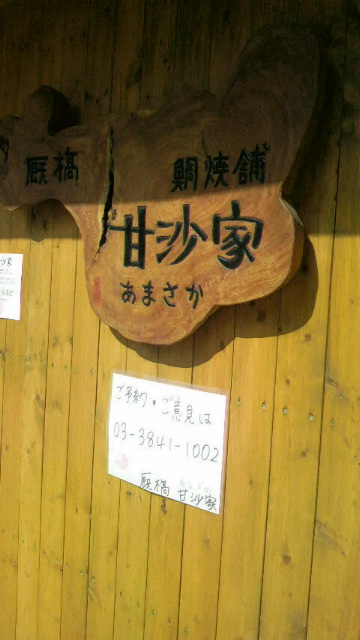 厩橋
鯛焼舗
甘沙家
あまさか
ご予約・ご意見は
03-3841-1002
厩橋 甘沙家